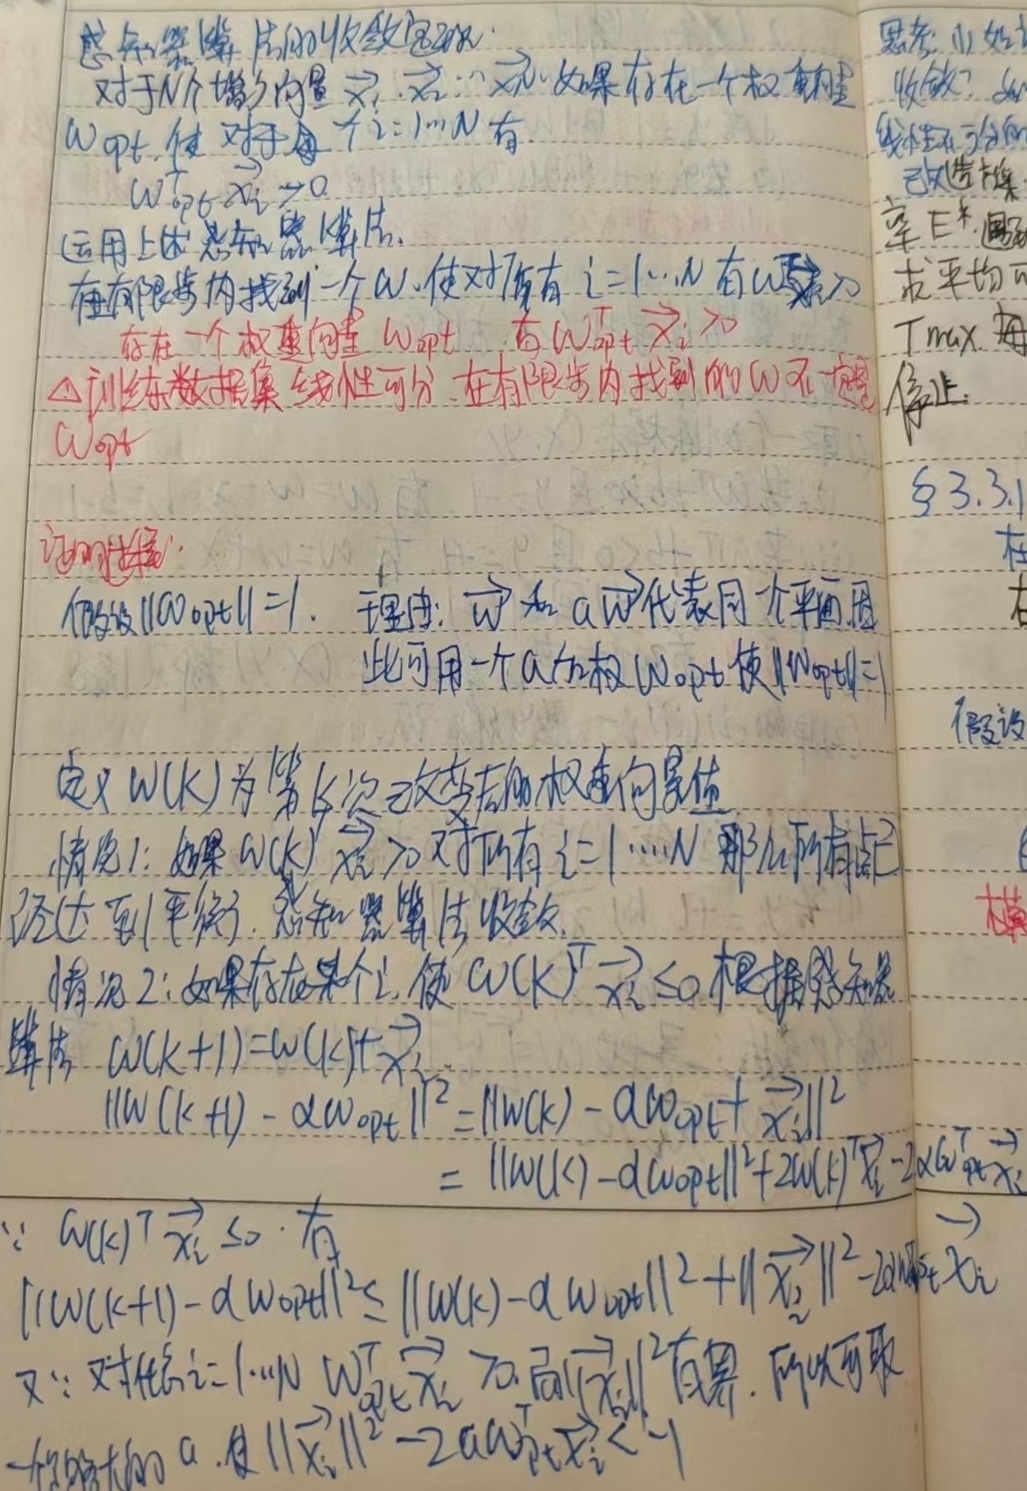 感知器算法的收敛定理:
对于N个增广向量 x⃗₁, x⃗₂ … x⃗N 如果存在一个权重向量
Wopt,使对于每个i=1…N有
Wᵀopt x⃗ᵢ>0
运用上述感知器算法,
在有限步内找到一个W,使对所有i=1…N有W x⃗ᵢ>0
存在一个权重向量 Wopt 有Wᵀopt x⃗ᵢ>0
△训练数据集线性可分,在有限步内找到的W不一定是
Wopt
证明过程:
假设||Wopt||=1. 理由: w⃗ 和 aw⃗代表同一个平面,因
此可用一个a加权Wopt使||Wopt||=1
定义W(k)为第k次改变后的权重向量值
情况1:如果W(k)ᵀx⃗ᵢ>0对所有i=1……N 那么所有点已
经达到平衡,感知器算法收敛.
情况2:如果存在某个i,使W(k)ᵀx⃗ᵢ≤0 根据感知器
算法 W(k+1)=W(k)+x⃗ᵢ
||W(k+1)-αwopt||²=||W(k)-αwopt+x⃗ᵢ||²
=||W(k)-αwopt||²+2W(k)ᵀx⃗ᵢ-2αWᵀopt x⃗ᵢ
∵ W(k)ᵀx⃗ᵢ≤0.有
||W(k+1)-αwopt||²≤||W(k)-αwopt||²+||x⃗ᵢ||²-2αWᵀopt x⃗ᵢ
又∵对任意i=1…N Wᵀopt x⃗ᵢ>0.而||x⃗ᵢ||²有界.所以可取
一个够大的a,使||x⃗ᵢ||²-2aWᵀopt x⃗ᵢ<-1
思考:(1)如
收敛?
线性不可分的
改造
率E*
求平均
Tmax
停止.
§3.3.1
在
右
假设